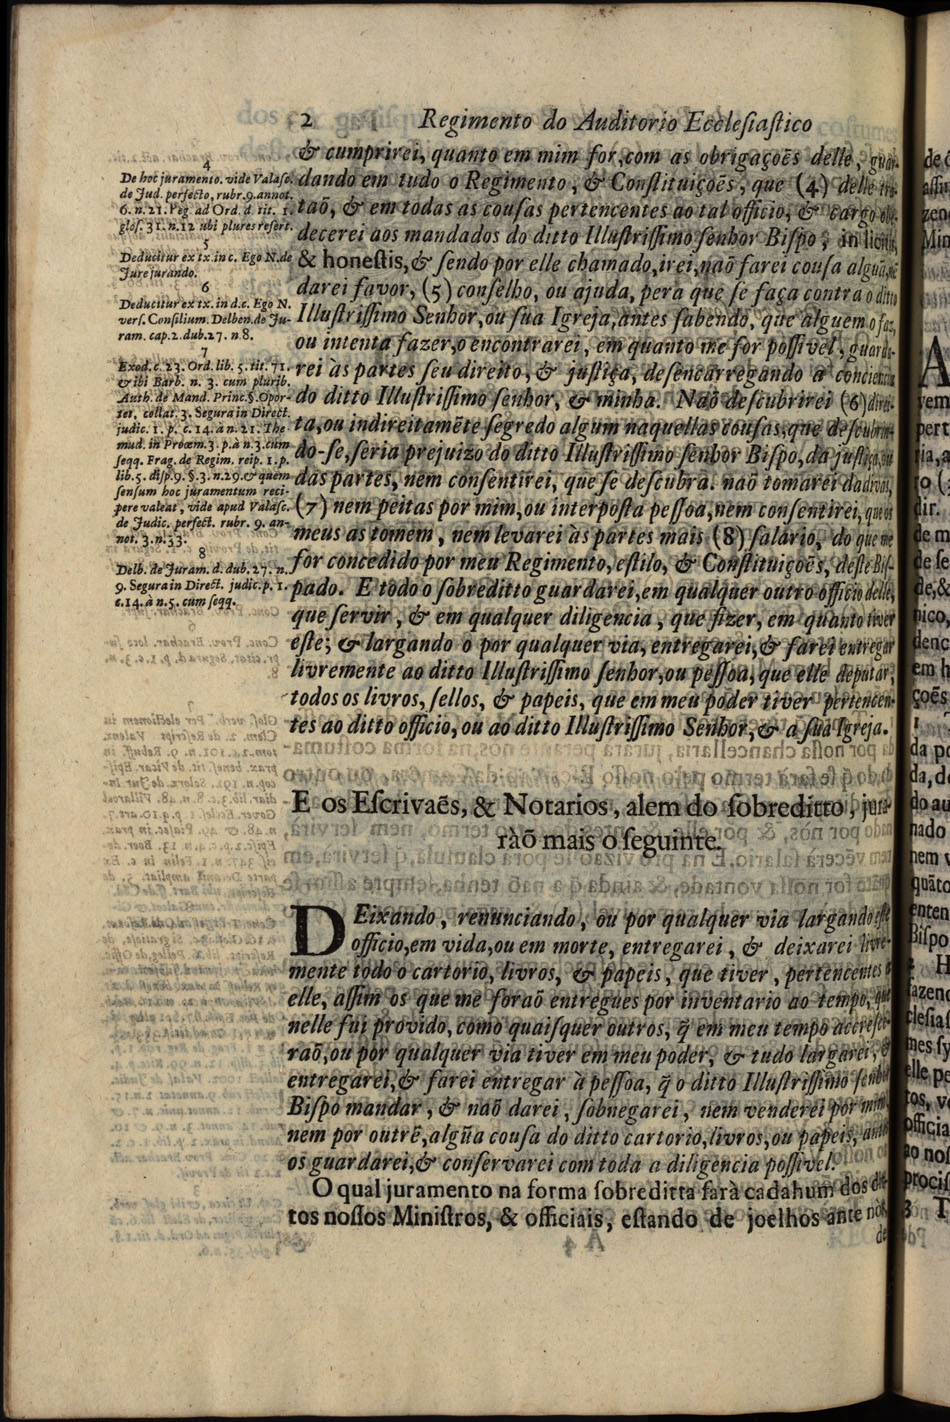 2 Regimento do Auditorio Ecclesiastico
& cumprirei, quanto em mim for, com as obrigaçoẽs delle, guar-
dando em tudo o Regimento, & Constituiçoẽs, que (4) delle
taõ, & em todas as cousas pertencentes ao tal officio, & cargo
decerei aos mandados do ditto Illustrissimo senhor Bispo, in licitis,
& honestis, & sendo por elle chamado, irei, naõ farei cousa algũa,
darei favor, (5) conselho, ou ajuda, pera que se faça contra o ditto
Illustrissimo Senhor, ou sua Igreja, antes sabendo, que alguem o faz,
ou intenta fazer, o encontrarei, em quanto me for possivel, guarda-
rei às partes seu direito, & justiça, desencarregando a conciencia
do ditto Illustrissimo senhor, & minha. Naõ descubrirei (6) direi-
ta, ou indireitamẽte segredo algum naquellas cousas, que descubrin-
do-se, seria prejuizo do ditto Illustrissimo senhor Bispo, da justiça,
das partes, nem consentirei, que se descubra. naõ tomarei dadivas,
(7) nem peitas por mim, ou interposta pessoa, nem consentirei, que os
meus as tomem, nem levarei às partes mais (8) salario, do que me
for concedido por meu Regimento, estilo, & Constituiçoẽs, deste Bis-
pado. E todo o sobreditto guardarei, em qualquer outro officio delle,
que servir, & em qualquer diligencia, que fizer, em quanto tiver
este; & largando o por qualquer via, entregarei, & farei entregar
livremente ao ditto Illustrissimo senhor, ou pessoa, que elle deputar,
todos os livros, sellos, & papeis, que em meu poder tiver pertencen-
tes ao ditto officio, ou ao ditto Illustrissimo Senhor, & a sua Igreja.
E os Escrivaẽs, & Notarios, alem do sobreditto, jura-
ràõ mais o seguinte.
DEixando, renunciando, ou por qualquer via largando este
officio, em vida, ou em morte, entregarei, & deixarei livre-
mente todo o cartorio, livros, & papeis, que tiver, pertencentes a
elle, assim os que me foraõ entregues por inventario ao tempo, que
nelle fui provido, como quaisquer outros, q̃ em meu tempo accresce-
raõ, ou por qualquer via tiver em meu poder, & tudo largarei, &
entregarei, & farei entregar à pessoa, q̃ o ditto Illustrissimo senhor
Bispo mandar, & naõ darei, sobnegarei, nem venderei por mim,
nem por outrẽ, algũa cousa do ditto cartorio, livros, ou papeis, antes
os guardarei, & conservarei com toda a diligencia possivel.
O qual juramento na forma sobreditta farà cadahum dos dit-
tos nossos Ministros, & officiais, estando de joelhos ante nòs,
de
4
De hoc juramento. vide Valasc.
de Jud. perfecto, rubr. 9. annot.
6. n. 21. Peg. ad Ord. d. tit. 1.
glos. 31. n. 12 ubi plures refert.
5
Deducitur ex tx. in c. Ego N. de
Jure jurando.
6
Deducitur ex tx. in d. c. Ego N.
vers. Consilium. Delben. de Ju-
ram. cap. 2. dub. 27. n. 8.
7
Exod. c. 23. Ord. lib. 5. tit. 71.
& ibi Barb. n. 3. cum plurib.
Auth. de Mand. Princ. §. Opor-
tet, collat. 3. Segura in Direct.
judic. 1. p. c. 14. à n. 21. The
mud. in Proœm. 3. p. à n. 3. cum
seqq. Frag. de Regim. reip. 1. p.
lib. 5. disp. 9. §. 3. n. 29. & quem
sensum hoc juramentum reci-
pere valeat, vide apud Valasc.
de Judic. perfect. rubr. 9. an-
not. 3. n. 33.
8
Delb. de Juram. d. dub. 27. n.
9. Segura in Direct. judic. p. 1.
c. 14. à n. 5. cum seqq.